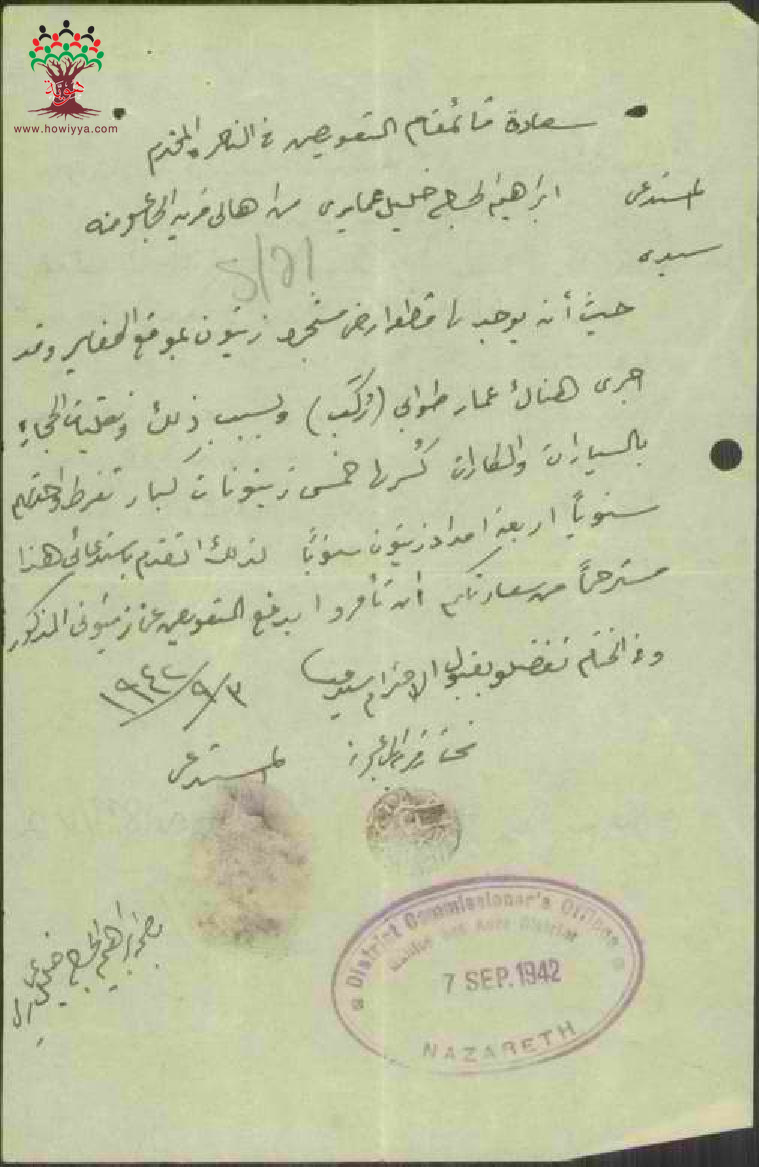 هوية
www.howiyya.com
سعادة قائمقام التعويض في الناصرة المحترم
المستدعى ابراهيم الحاج خليل عمايري من اهالى قرية
سيدى
16/5
حيث أنه يوجد لي قطعة ارض مشجرة زيتون بموقع الحفاير وقد
جرى هنالك عمار طوابي (تركب) وبسبب ذلك ونقليات الحجارة
بالسيارات والطارات كُسر لها خمس زيتونات كبار تفرط واحدتهم
سنوياً اربعة امداد زيتون سنوياً لذلك اتقدم باستدعائي هذا
مسترحماً من سعادتكم أن تأمروا بدفع التعويض عن زيتوني المذكور
وفي الختام تفضلو بقبول الاحترام سيدي
١٩٤٢/٩/٣
المستدعى
بصمة ابراهيم الحاج خليل
District Commissioner's Offices
Galilee and Acre District
7 SEP. 1942
NAZARETH